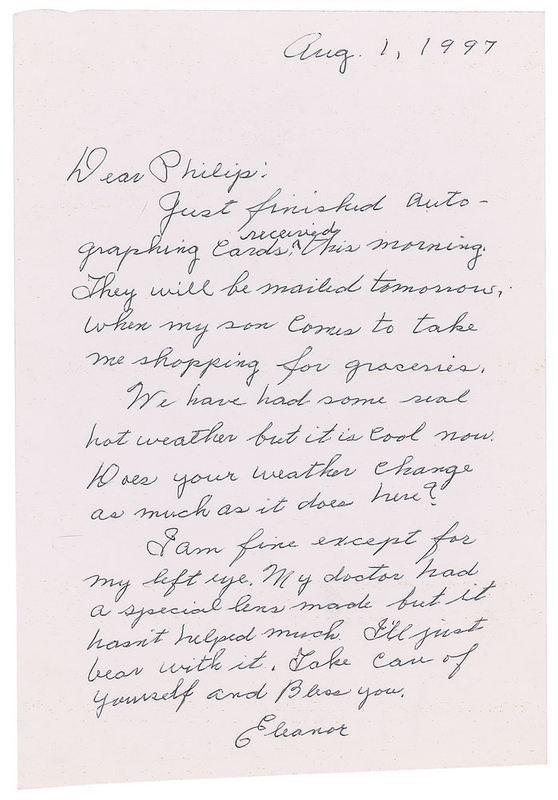 Aug. 1, 1997
Dear Philip:
Just finished auto-
graphing cards, received this morning.
They will be mailed tomorrow,
when my son comes to take
me shopping for groceries.
We have had some real
hot weather but it is cool now.
Does your weather change
as much as it does here?
I am fine except for
my left eye. My doctor had
a special lens made but it
hasn't helped much. I'll just
bear with it. Take care of
yourself and Bless you.
Eleanor